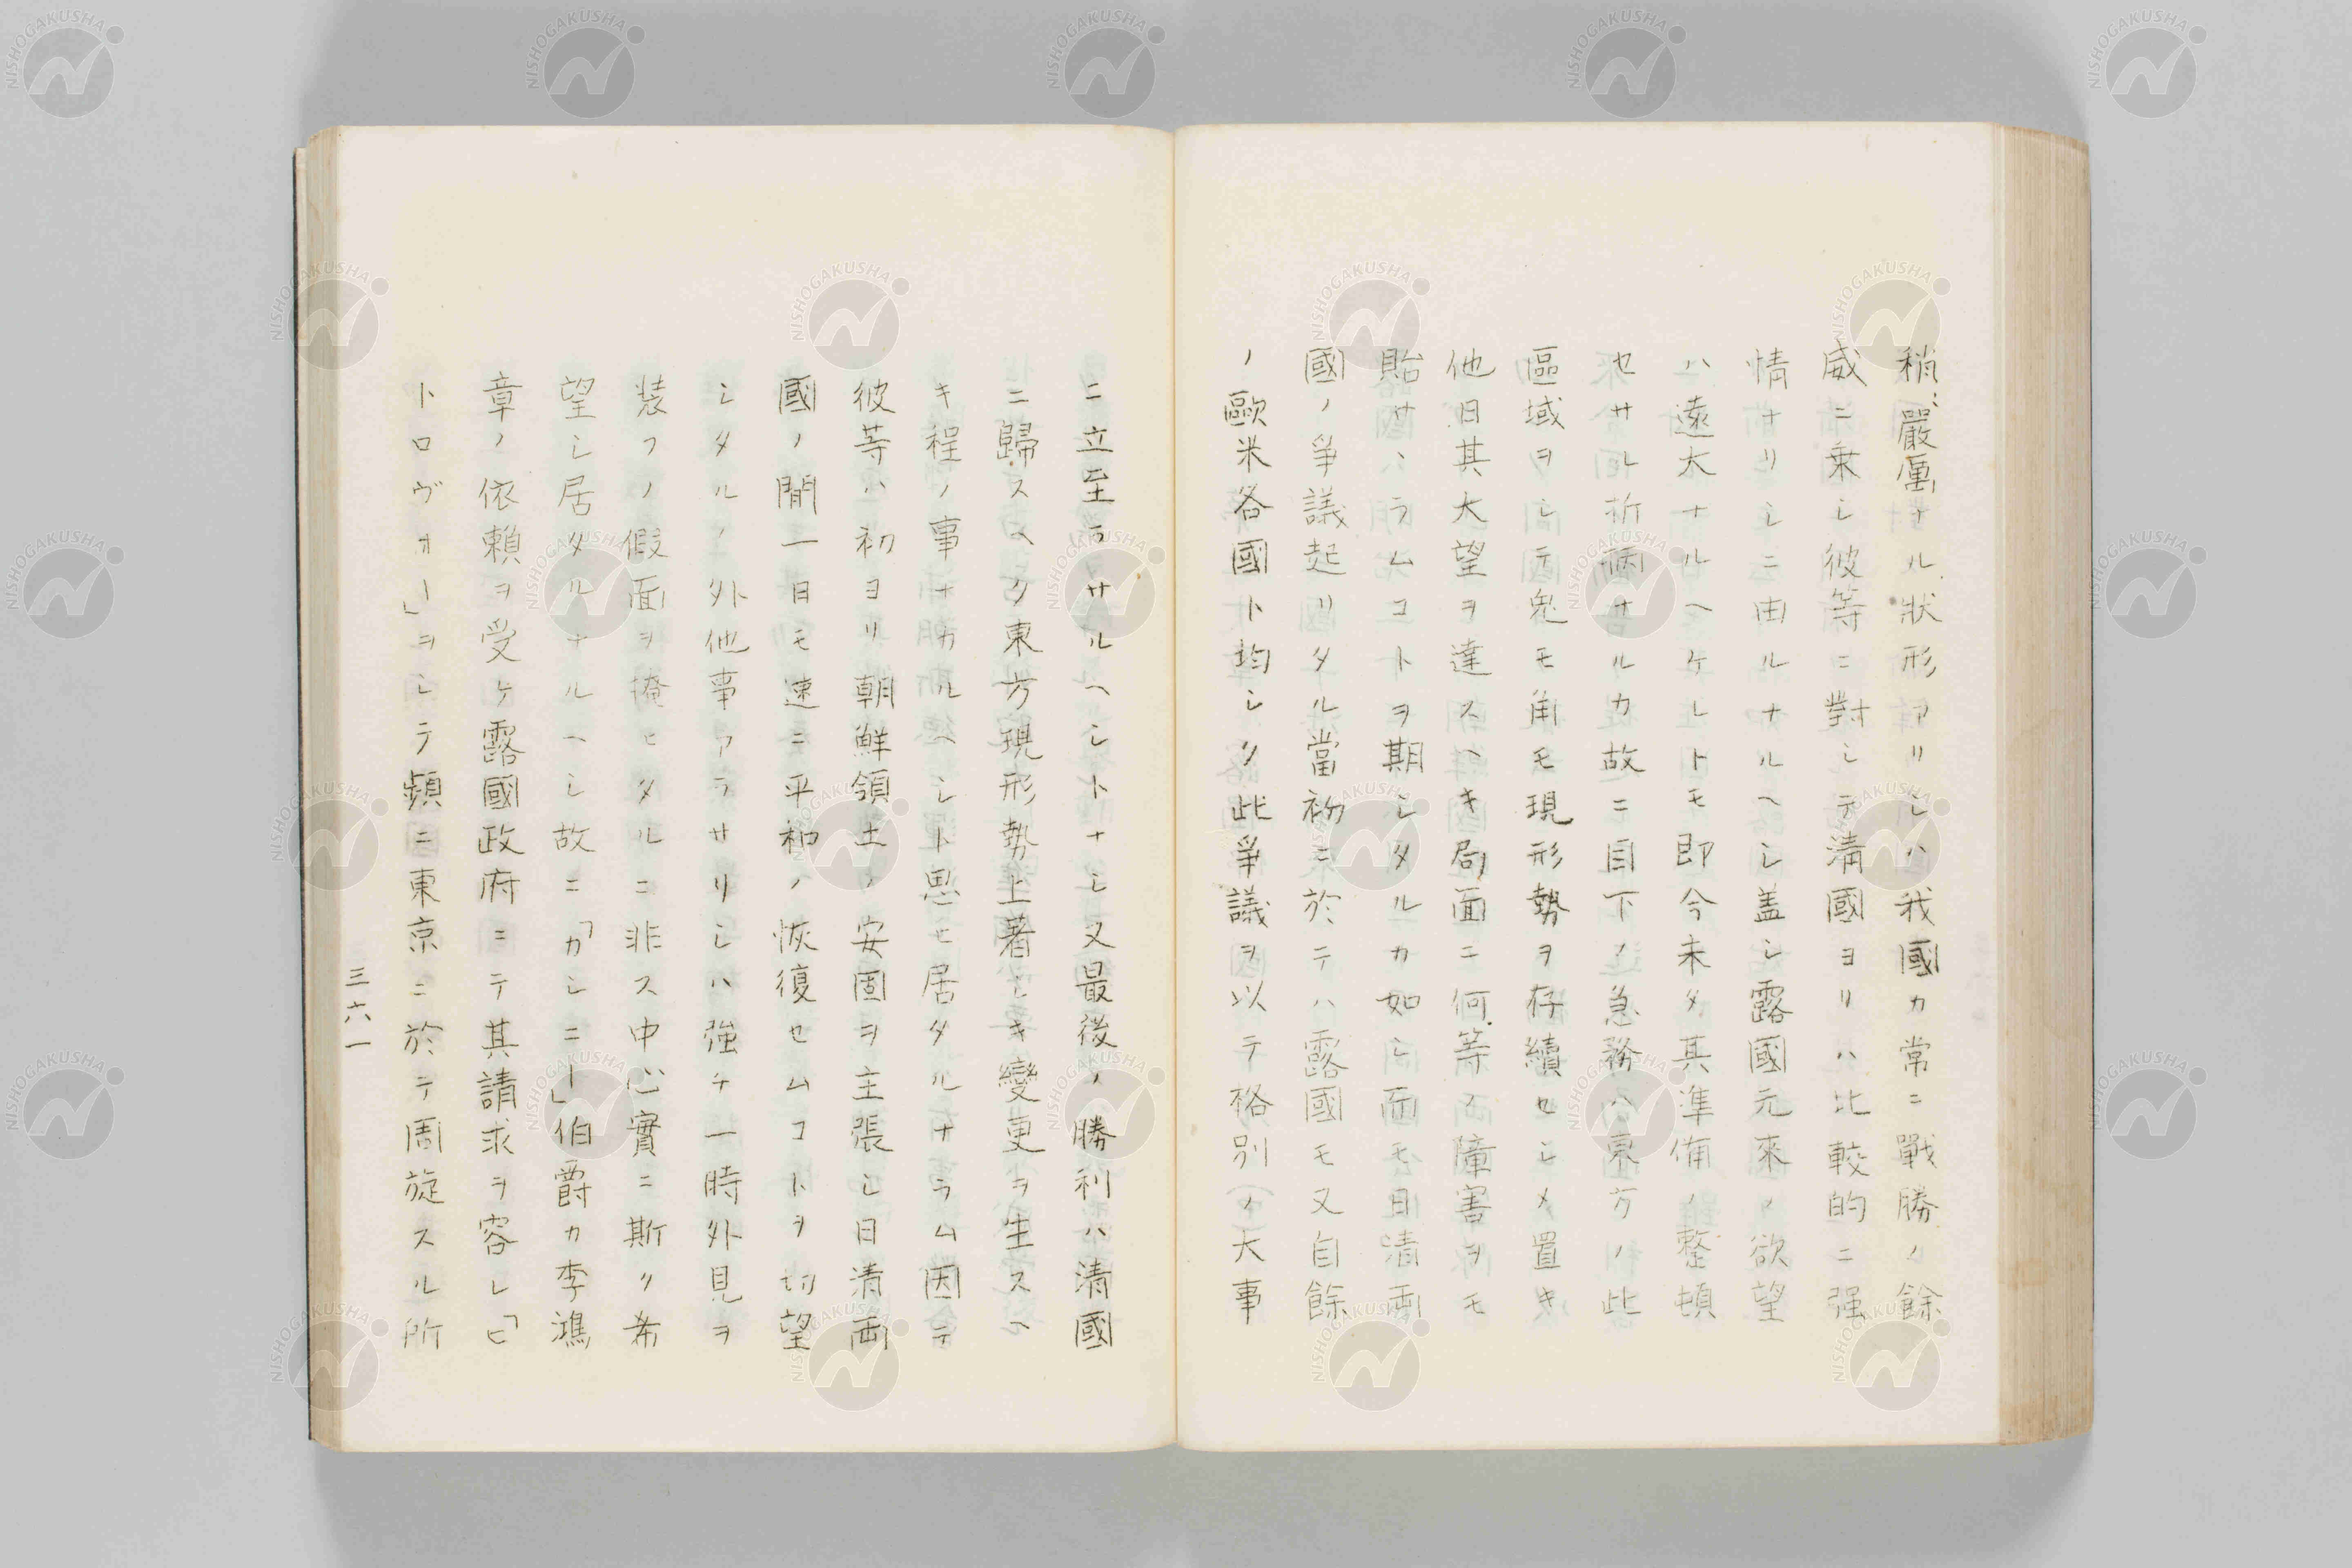 稍〻嚴厲ナル狀形アリシハ我國カ常ニ戰勝ノ餘
威ニ乗シ彼等ニ對シテ清國ヨリハ比較的ニ强
情ナリシニ由ルナルヘシ盖シ露國元來ノ欲望
ハ遠大ナルヘケレトモ即今未タ其準備ノ整頓
セサル折柄ナルカ故ニ目下ノ急務ハ東方ノ此
區域ヲシテ兎モ角モ現形勢ヲ存續セシメ置キ
他日其大望ヲ達スヘキ局面ニ何等ノ障害ヲモ
貽サヽラムコトヲ期シタルカ如シ而モ日清両
國ノ爭議起リタル當初ニ於テハ露國モ又自餘
ノ歐米各國ト均シク此爭議ヲ以テ格別ノ大事
ニ立至ラサルヘシトナシ又最後ノ勝利ハ清國
ニ歸スヘク東方現形勢上著シキ變更ヲ生スヘ
キ程ノ事ナカルヘシト思ヒ居タルナラム因テ
彼等ハ初ヨリ朝鮮領土ノ安固ヲ主張シ日清両
國ノ間一日モ速ニ平和ノ恢復セムコトヲ切望
シタルノ外他事アラサリシハ強チ一時外見ヲ
装フノ假面ヲ掩ヒタルニ非ス中心實ニ斯ク希
望シ居タルナルヘシ故ニ「カシニー」伯爵カ李鴻
章ノ依賴ヲ受ケ露國政府ニテ其請求ヲ容レ「ヒ
トロヴォー」ヲシテ頻ニ東京ニ於テ周旋スル所
三六一
NISHOGAKUSHA